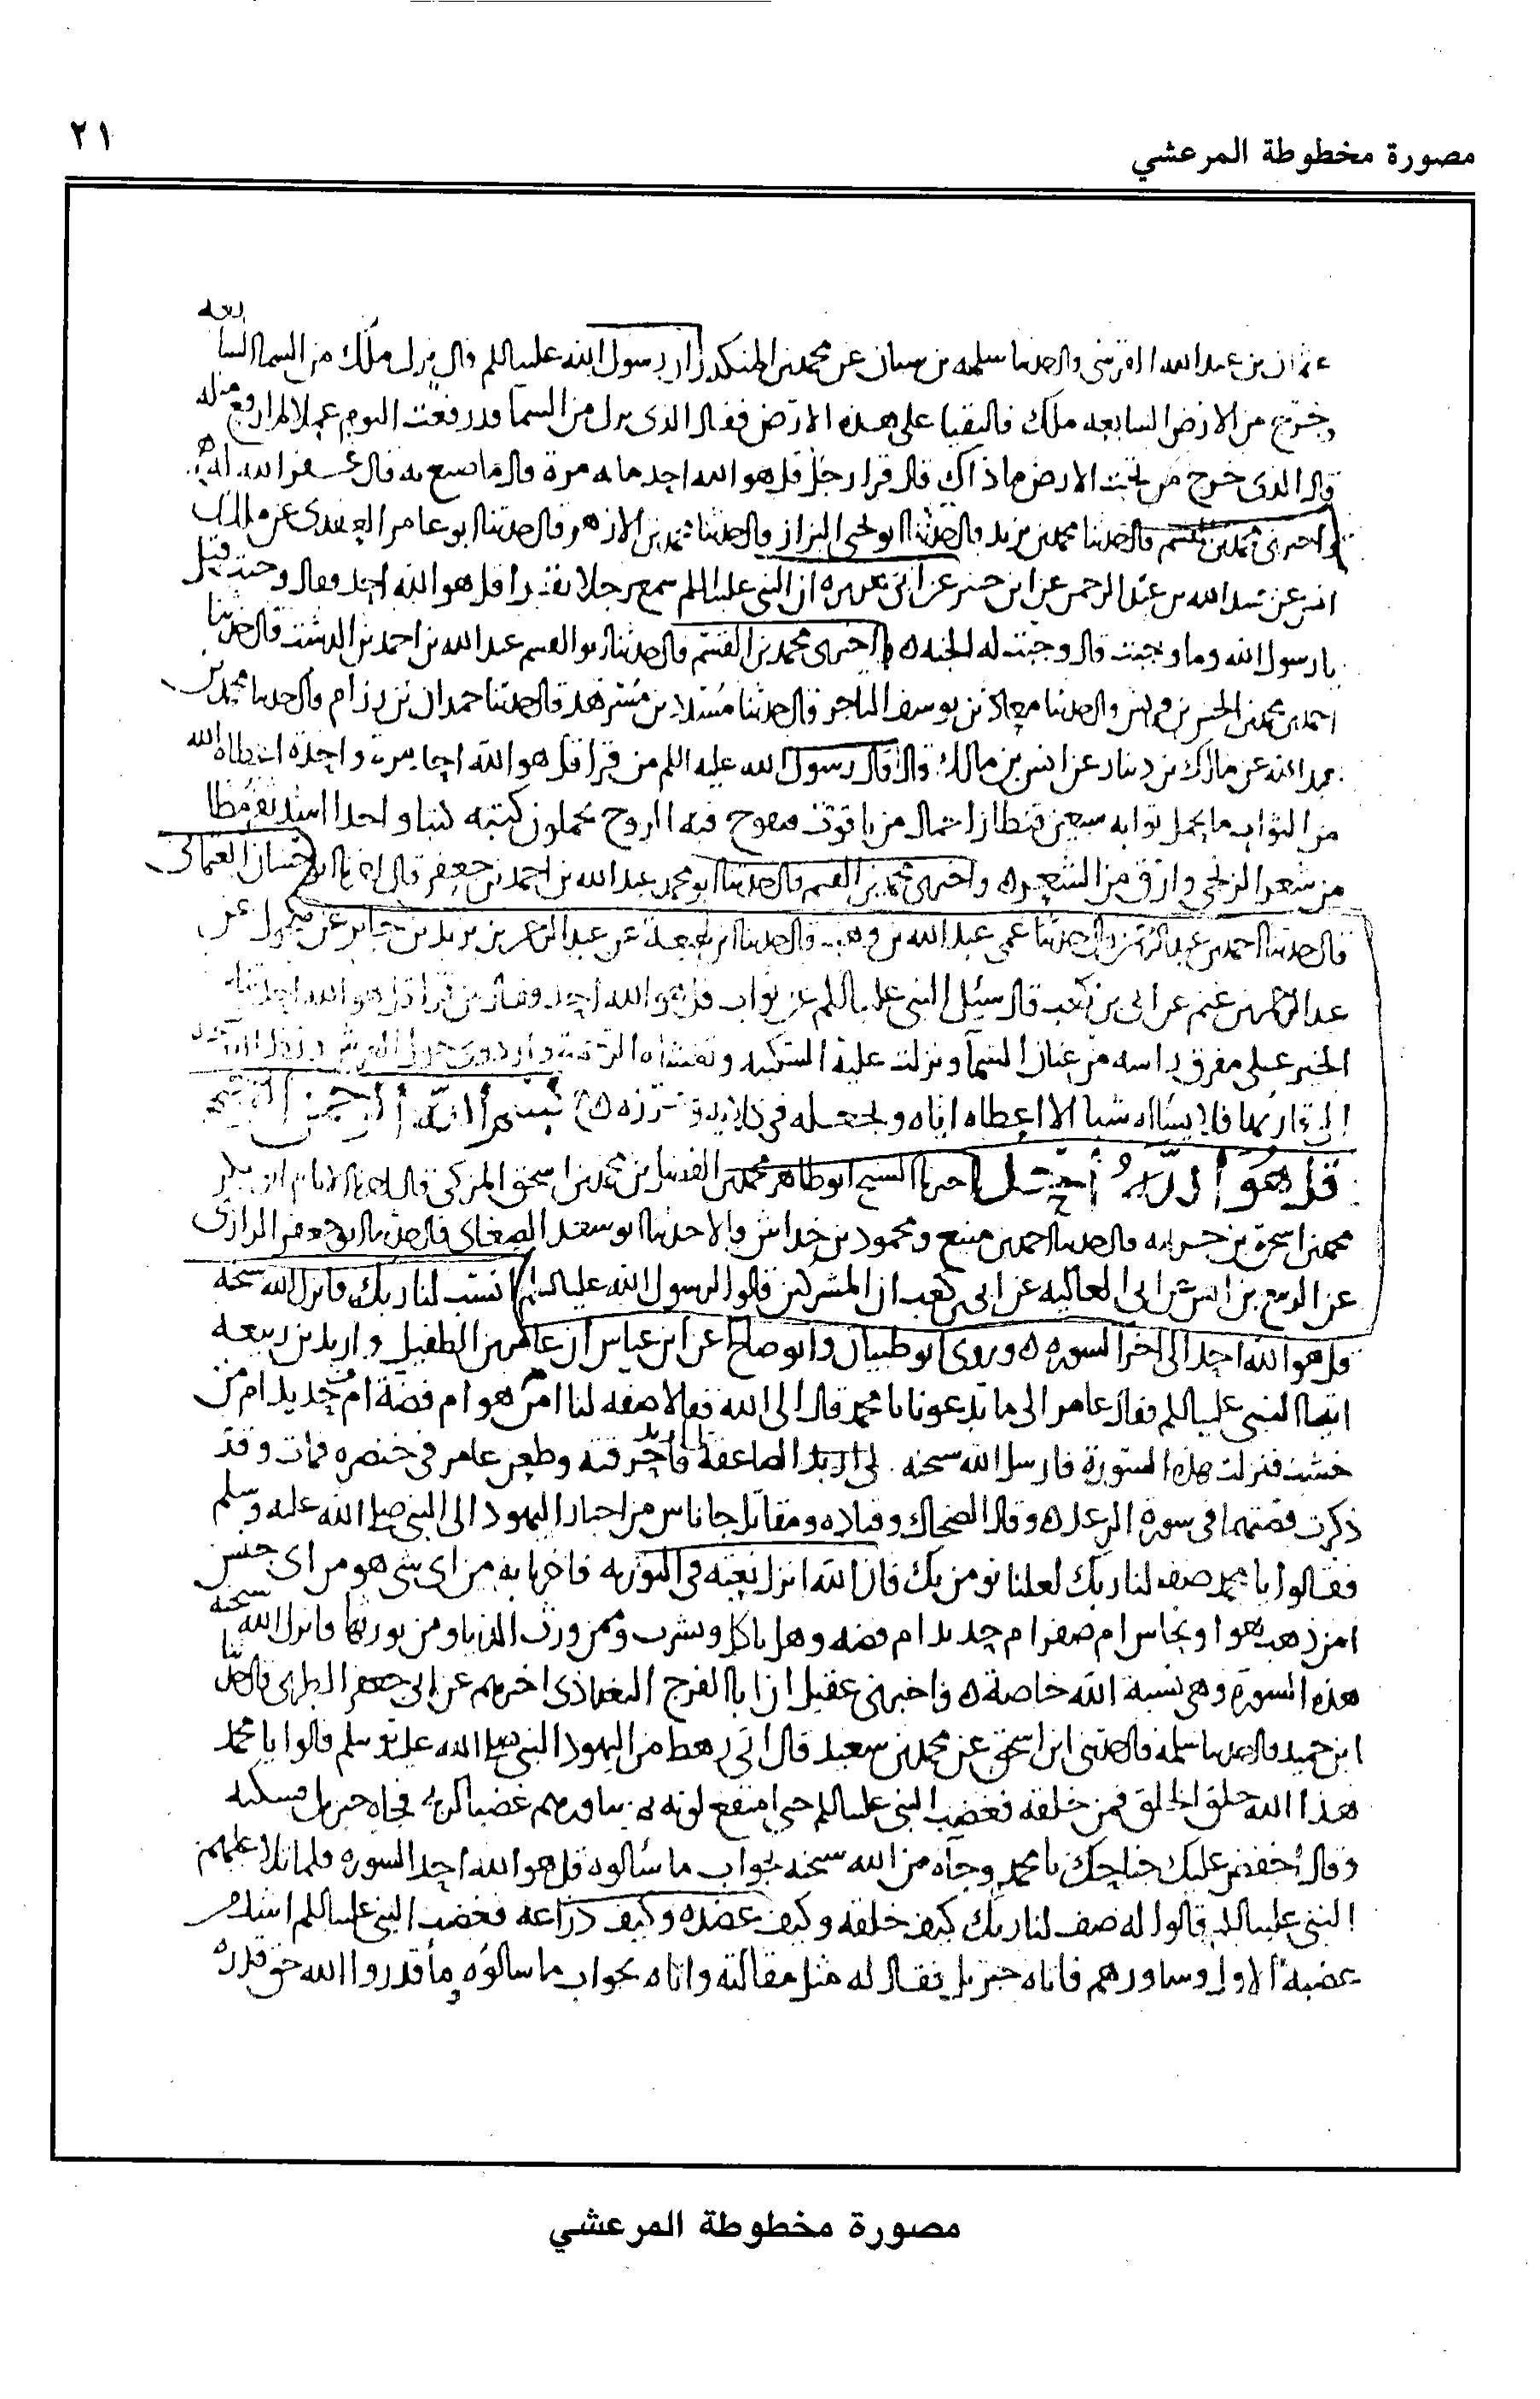 ٢١
مصورة مخطوطة المرعشي
بن عبد الله القرشي قال حدثنا سلمه بن سنان عن محمد بن المنكدر ان رسول الله عليه السلم قال ينزل ملك من السما السابعه
ويخرج من الارض السابعه ملك فالتقيا على هذه الارض فقال الذى نزل من السما قد رفعت اليوم عملا لم ارفع مثله
قال الذى خرج من تحت الارض ما ذاك قال قرا رجل قل هو الله احد مايه مرة قال ما صنع به قال غفر الله له
واخبرنى محمد بن القسم قال حدثنا محمد بن يزيد قال حدثنا ابو يحيى البزاز قال حدثنا محمد بن الازهر قال حدثنا ابو عامر العقدى عن مالك بن
انس عن عبد الله بن عبد الرحمن عن ابن حنين عن ابى هريره ان النبى عليه السلم سمع رجلا يقرا قل هو الله احد فقال وجبت قيل
يا رسول الله وما وجبت قال وجبت له الجنه ه واخبرنى محمد بن القسم قال حدثنا ابو القسم عبد الله بن احمد بن الدشت قال حدثنا
احمد بن محمد بن الحسن بن قريش قال حدثنا معاذ بن يوسف التاجر قال حدثنا بن مسرهد قال حدثنا حمدان بن رزام قال حدثنا محمد بن
عبد الله عن مالك بن دينار عن انس بن مالك قال قال رسول الله عليه السلم من قرا قل هو الله احد مرة واحدة اعطاه الله
من الثواب ما يحمل ثوابه سبعين قنطارا مثال من ياقوت منفوح فيه الروح يحملون كتبته كتبا واحدا اشد
من شعر الزنجى وارق من الشعر ه واخبرنى محمد بن القسم قال حدثنا ابو محمد عبد الله بن احمد بن جعفر قال اخبرنا ابو حسان العثمانى
قال حدثنا احمد بن عبد الرحمن قال حدثنا عمى عبد الله بن وهب قال حدثنا ابن لهيعة عن عبد الرحمن بن يزيد بن جابر عن مكحول عن
عبد الرحمن بن غنم عن ابى بن كعب قال سئل النبى عليه السلم عن ثواب قل هو الله احد فقال من قرا قل هو الله احد تناثر
الخير على مفرق راسه من عنان السما ونزلت عليه السكينه وتغشاه الرحمة وله دوى حول العرش ونظر الله
الى قاريها فلا يسا له شيا الا اعطاه اياه ويجعله فى كلايته وحرزه ه بسم الله الرحمن الرحيم
قل هو الله احد اخبرنا الشيخ ابو طاهر محمد بن الفضل بن محمد بن اسحق المزكى قال اخبرنا الامام ابو بكر
محمد بن اسحق بن خزيمه قال حدثنا احمد بن منيع ومحمود بن خداش قالا حدثنا ابو سعد الصغانى قال حدثنا ابو جعفر الرازى
عن الربيع بن انس عن ابى العاليه عن ابى بن كعب ان المشركين قالوا لرسول الله عليه السلم انسب لنا ربك فانزل الله سبحنه
قل هو الله احد الى اخر السوره ه وروى ابو ظبيان وابو صالح عن ابن عباس ان عامر بن الطفيل واربد بن ربيعه
اتيا النبى عليه السلم فقال عامر الى ما تدعونا يا محمد قال الى الله فقالا صفه لنا امن هو ام فضة ام من حديد ام من
خشب فنزلت هذه السورة فارسل الله سبحنه الى اربد الصاعقة فاحرقته وطعن عامر فى خنصره فمات وقد
ذكرت قصتهما فى سورة الرعد ه وقال الضحاك وقتاده ومقاتل جا ناس من احبار اليهود الى النبى صلى الله عليه وسلم
فقالوا يا محمد صف لنا ربك لعلنا نومن بك فان الله انزل نعته فى التوريه فاخبرنا به من اى شى هو من اى جنس
امن ذهب هو او نحاس ام صفر ام حديد ام فضه وهل ياكل ويشرب وممن ورث الدنيا ومن يورثها فانزل الله سبحنه
هذه السوره وهى نسبة الله خاصة ه واخبرنى عقيل ان ابا الفرج البغدادى اخبرهم عن ابى جعفر الطبرى قال حدثنا
ابن حميد قال حدثنا سلمه قال حدثنى ابن اسحق عن محمد بن سعيد قال اتى رهط من اليهود النبى صلى الله عليه وسلم قالوا يا محمد
هذا الله خلق الخلق فمن خلقه فغضب النبى عليه السلم حتى امتقع لونه ثم ساورهم غضبا لربه فجاه جبريل فسكنه
وقال اخفض عليك جناحك يا محمد وجاه من الله سبحنه بجواب ما سالوه قل هو الله احد السوره فلما تلا عليهم
النبى عليه السلم قالوا له صف لنا ربك كيف خلقه وكيف عضده وكيف ذراعه فغضب النبى عليه السلم اشد من
غضبه الاول وساورهم فاتاه جبريل فقال له مثل مقالته واتاه بجواب ما سالوه وما قدروا الله حق قدره
مصورة مخطوطة المرعشي